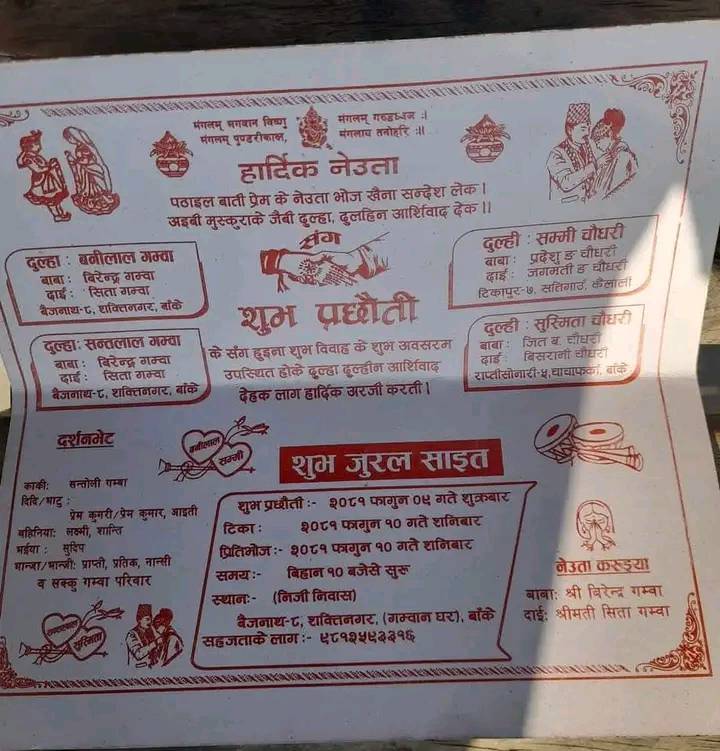 मंगलम् भगवान विष्णु मंगलम् गरुडध्वज ।
मंगलम् पुण्डरीकाक्ष, मंगलाय तनोहरि ॥
हार्दिक नेउता
पठाइल बाती प्रेम के नेउता भोज खैना सन्देश लेक ।
अइबी मुस्कुराके जैबी दुल्हा, दुलहिन आर्शिवाद देक ।।
दुल्हा : बनीलाल गम्वा
बाबा : बिरेन्द्र गम्वा
दाई : सिता गम्वा
बैजनाथ-८, शक्तिनगर, बाँके
संग
दुल्ही : सम्मी चौधरी
बाबा : प्रदेशु ङ चौधरी
दाई : जगमती ङ चौधरी
टिकापुर-७, सतिगाउँ, कैलाली
शुभ प्रछौती
दुल्हा: सन्तलाल गम्वा
बाबा : बिरेन्द्र गम्वा
दाई : सिता गम्वा
बैजनाथ-८, शक्तिनगर, बाँके
के संग हुइना शुभ विवाह के शुभ अवसरम
उपस्थित होके दुल्हा दुल्हीन आर्शिवाद
देहक लाग हार्दिक अरजी करती ।
दुल्ही : सुस्मिता चौधरी
बाबा : जित ब. चौधरी
दाई : बिसरानी चौधरी
राप्तीसोनारी-५,चाचाफर्का, बाँके
दर्शनभेट
बनीलाल
सम्मी
शुभ जुरल साइत
काकी: सन्तोली गम्वा
दिदि/भाटु :
प्रेम कुमरी/प्रेम कुमार, आइती
बहिनिया: लक्ष्मी, शान्ति
भईया : सुदिप
भान्जा/भान्जी: प्राप्ती, प्रतिक, नान्सी
व सक्कु गम्वा परिवार
सन्तलाल
सुस्मिता
शुभ प्रछौती :- २०८१ फागुन ०९ गते शुक्रबार
टिका : २०८१ फागुन १० गते शनिबार
प्रितिभोज :- २०८१ फागुन १० गते शनिबार
समय :- बिहान १० बजेसे सुरू
स्थान:- (निजी निवास)
बैजनाथ-८, शक्तिनगर, (गम्वान घर), बाँके
सहजताके लाग :- ९८१२५९२२१६
नेउता करुइया
बाबा: श्री बिरेन्द्र गम्वा
दाई: श्रीमती सिता गम्वा